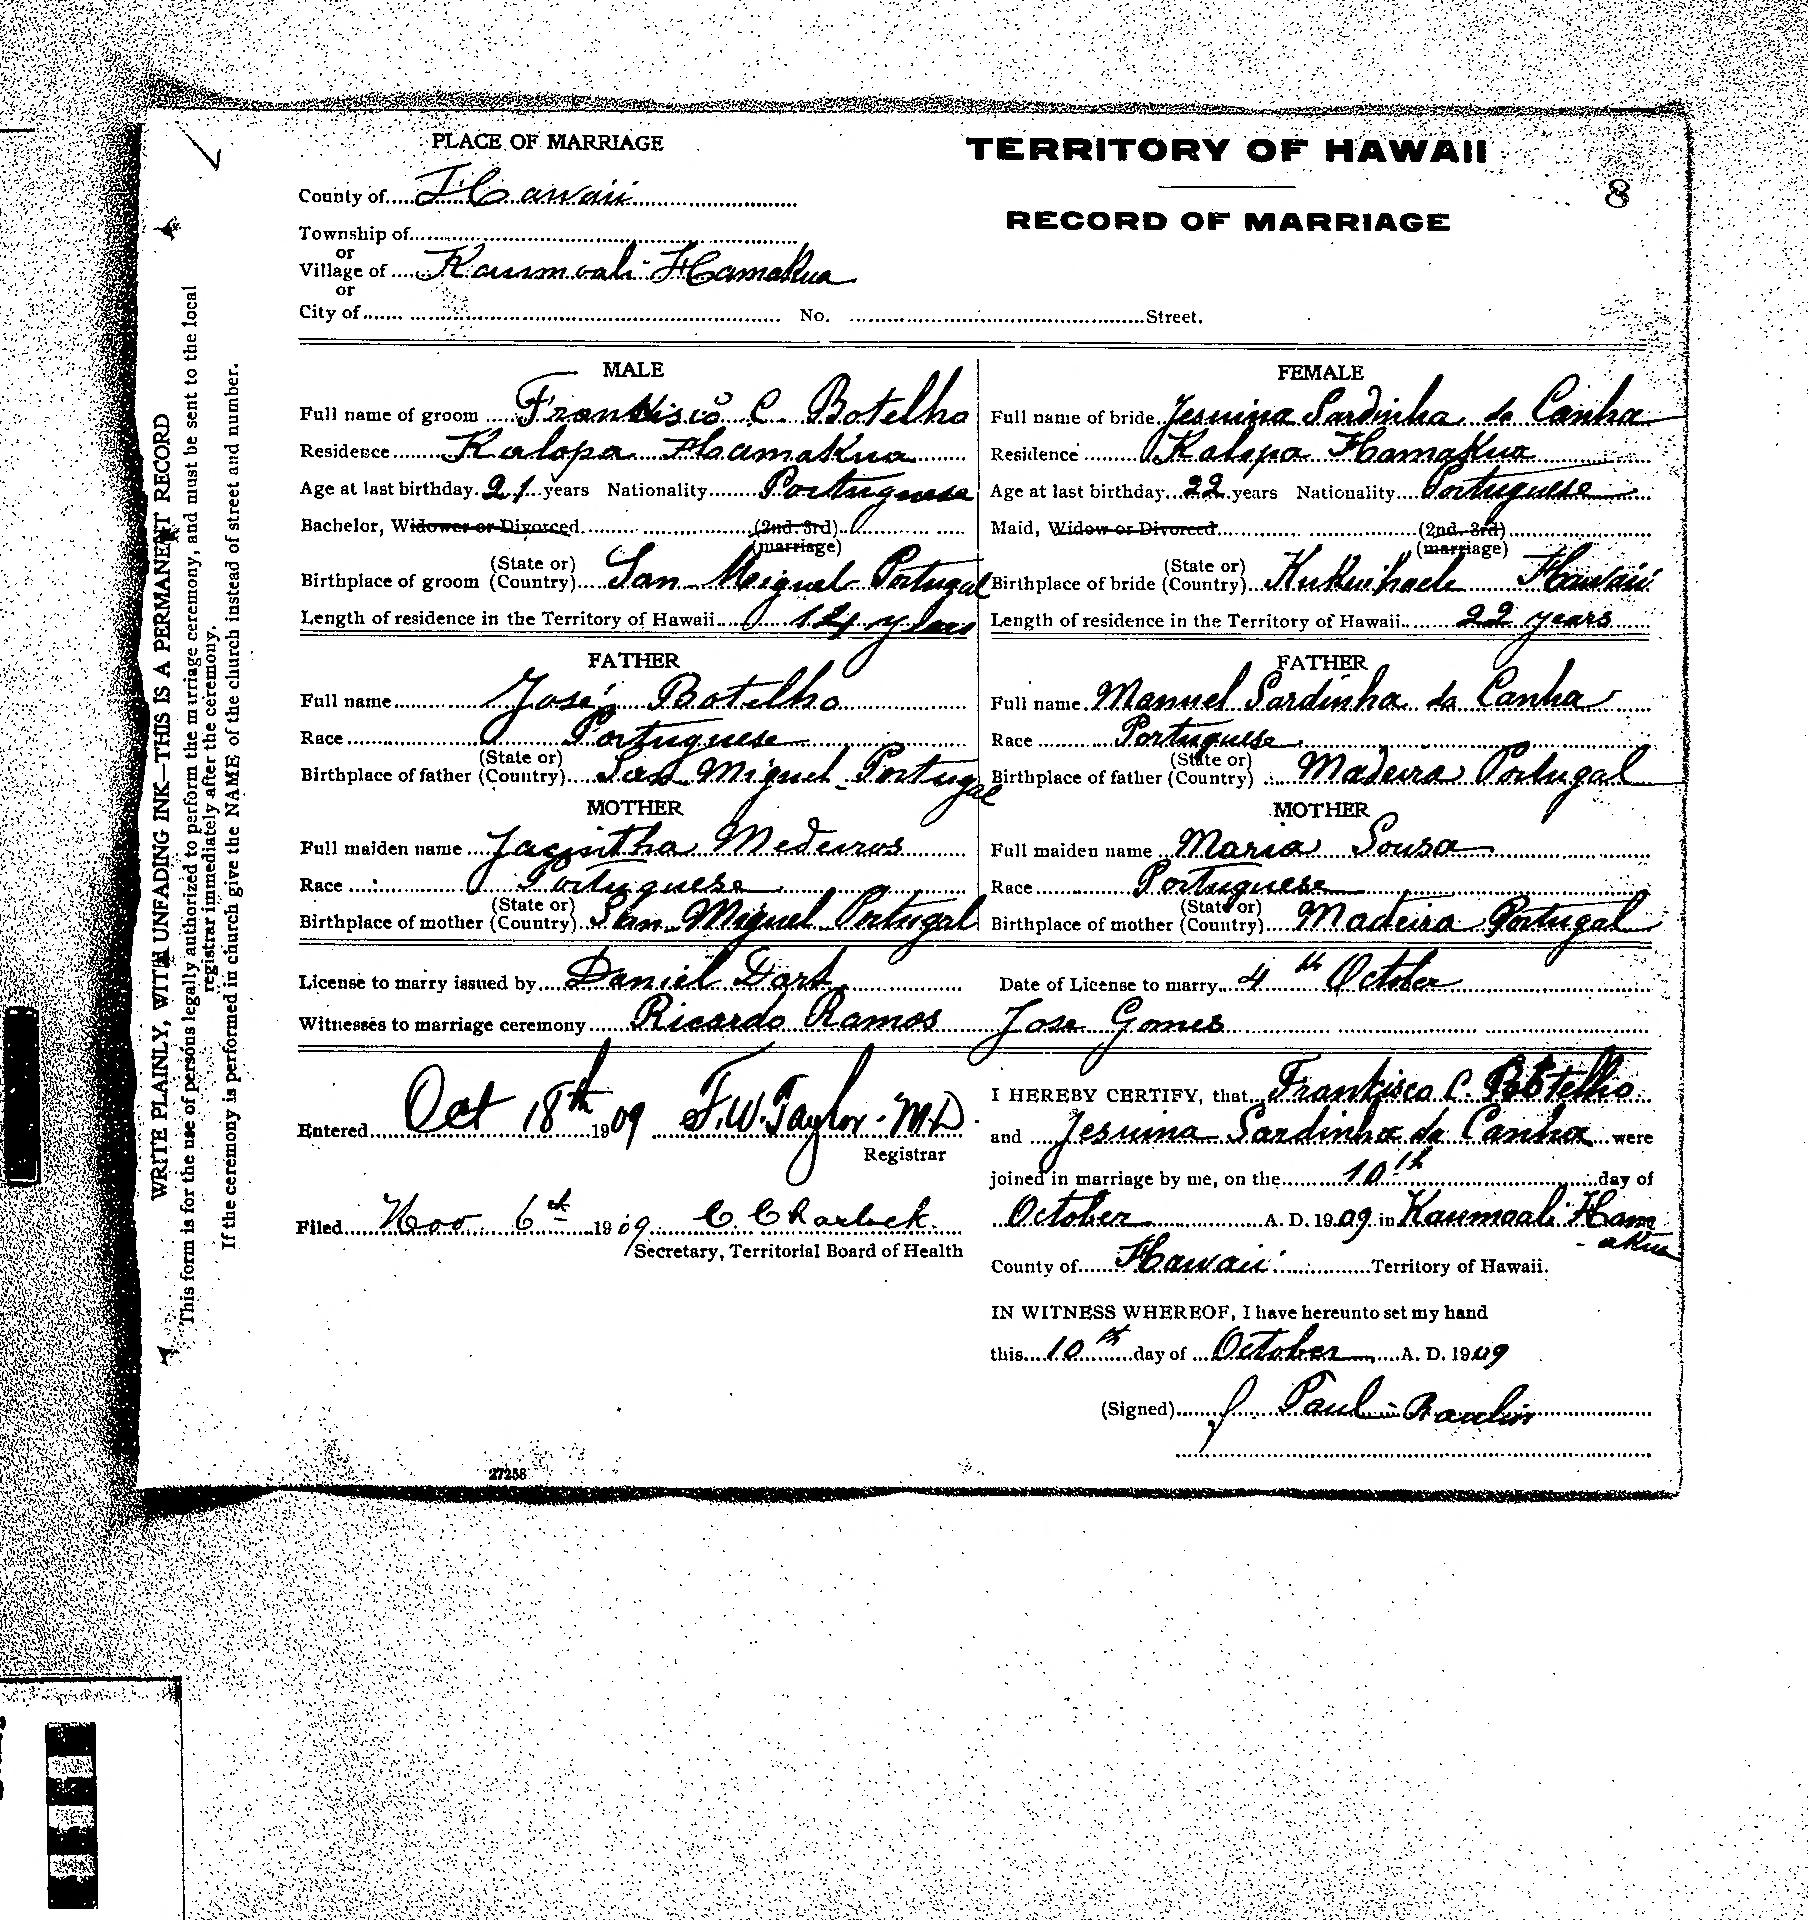 PLACE OF MARRIAGE
TERRITORY OF HAWAII
8
RECORD OF MARRIAGE
County of Hawaii
Township of
or
Village of Kaumoali Hamakua
or
City of No. Street.
WRITE PLAINLY, WITH UNFADING INK—THIS IS A PERMANENT RECORD
This form is for the use of persons legally authorized to perform the marriage ceremony, and must be sent to the local
registrar immediately after the ceremony.
If the ceremony is performed in church give the NAME of the church instead of street and number.
MALE
Full name of groom Francisco C. Botelho
Residence Kalopa Hamakua
Age at last birthday 21 years Nationality Portuguese
Bachelor, Widower or Divorced (2nd. 3rd)
(marriage)
Birthplace of groom (State or) (Country) San Miguel Portugal
Length of residence in the Territory of Hawaii 14 years
FATHER
Full name José Botelho
Race Portuguese
Birthplace of father (State or) (Country) San Miguel Portugal
MOTHER
Full maiden name Jacintha Medeiros
Race Portuguese
Birthplace of mother (State or) (Country) San Miguel Portugal
FEMALE
Full name of bride Jesuina Sardinha da Canha
Residence Kalopa Hamakua
Age at last birthday 22 years Nationality Portuguese
Maid, Widow or Divorced (2nd. 3rd)
(marriage)
Birthplace of bride (State or) (Country) Kukuihaele Hawaii
Length of residence in the Territory of Hawaii 22 years
FATHER
Full name Manuel Sardinha da Canha
Race Portuguese
Birthplace of father (State or) (Country) Madeira Portugal
MOTHER
Full maiden name Maria Sousa
Race Portuguese
Birthplace of mother (State or) (Country) Madeira Portugal
License to marry issued by Daniel Date of License to marry 4th October
Witnesses to marriage ceremony Ricardo Ramos Jose Gomes
Entered Oct 18th 1909 F. W. Taylor M.D.
Registrar
Filed Nov 6th 1909 C Charlock
Secretary, Territorial Board of Health
I HEREBY CERTIFY, that Francisco C. Botelho
and Jesuina Sardinha da Canha were
joined in marriage by me, on the 10th day of
October A. D. 1909 in Kaumoali Ham
akua
County of Hawaii Territory of Hawaii.
IN WITNESS WHEREOF, I have hereunto set my hand
this 10th day of October A. D. 1909
(Signed) Paul
27256